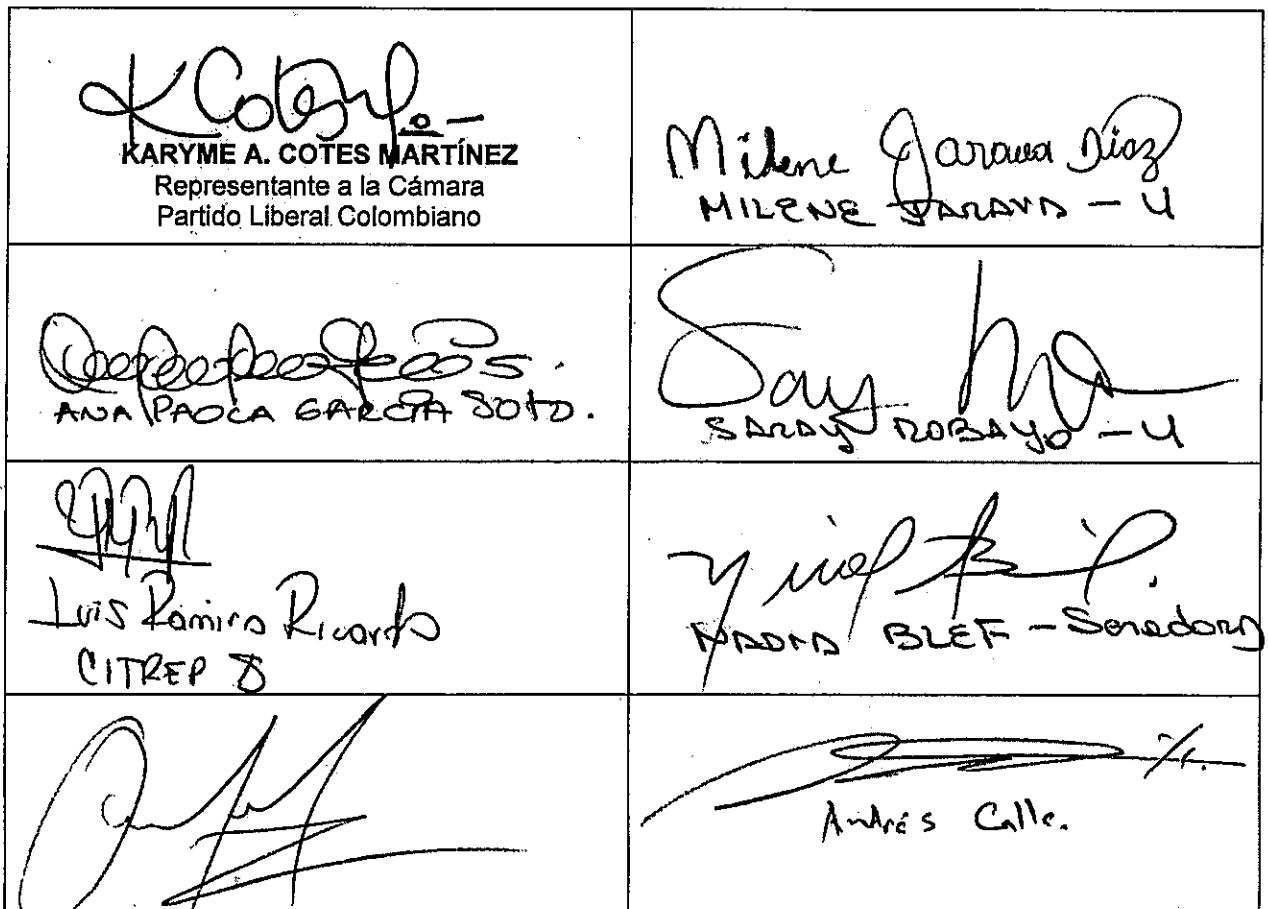 KCotes
KARYME A. COTES MARTÍNEZ
Representante a la Cámara
Partido Liberal Colombiano
Milene Jarava Díaz
MILENE JARAVA - U
ANA PAOLA GARCÍA SOTO.
Saray
SARAY ROBAYO - U
Luis Ramiro Ricardo
CITREP 8
NADIA BLEF - Senadora
Andrés Calle.